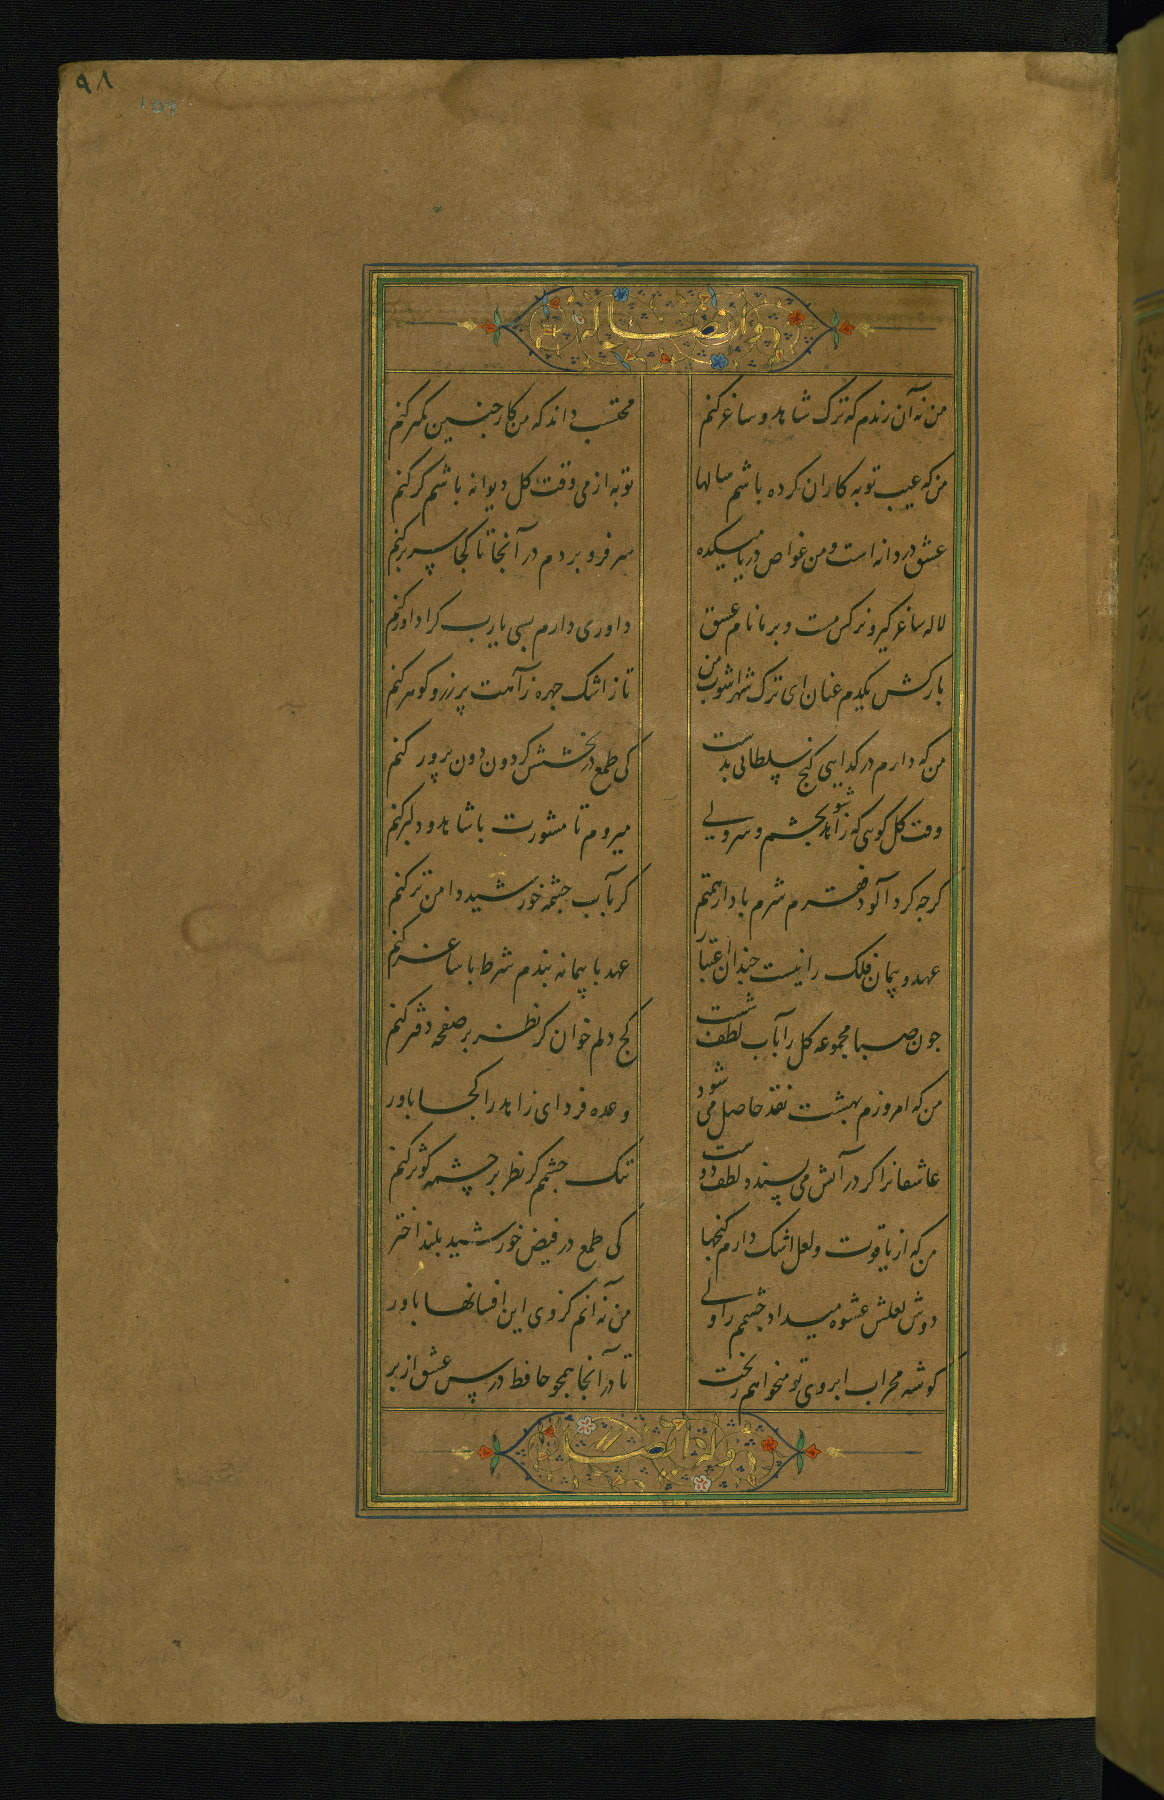 ۹۸
من نه آن رندم که ترک شاهد و ساغر کنم محتسب داند که من کار چنین کمتر کنم
من که عیب توبه کاران کرده باشم سالها توبه از می وقت کل دیوانه باشم کر کنم
عشق دردانه است و من غواص دریا میکده سر فرو بردم در آنجا تا کجا سر بر کنم
لاله ساغر کیر و نرکس مست و بر ما نام عسق داوری دارم بسی یا رب کرا داور کنم
بازکش یکدم عنان ای ترک شهراشوب من تا ز اشک چهره راهت پر زر و کوهر کنم
من که دارم در کدایی کنج سلطانی بدست کی طمع در بخشش کردون دون پرور کنم
وقت کل کوی که زاهد شو بچشم و سر ولی میروم تا مشورت با شاهد و دلبر کنم
کرچه کرد آلود فقرم شرم باد از همتم کر بآب چشمه خورشید دامن تر کنم
عهد و پیمان فلک را نیست چندان اعتبار عهد با پیمانه بندم شرط با ساغر کنم
چون صبا مجموعه کل را بآب لطف شست کج دلم خوان کر نظر بر صفحه دفتر کنم
من که امروزم بهشت نقد حاصل می شود وعده فردای زاهد را کجا باور
عاشقانرا کر در آتش می پسندد لطف دوست تنک چشمم کر نظر بر چشمه کوثر کنم
من که از یاقوت و لعل اشک دارم کنجها کی طمع در فیض خورشید بلند اختر
دوش لعلش عشوه میداد چشمم را ولی من نه آنم کز وی این افسانها باور
کوشه محراب ابروی تو میخواهم ز بخت تا در آنجا همچو حافظ درس عشق از بر